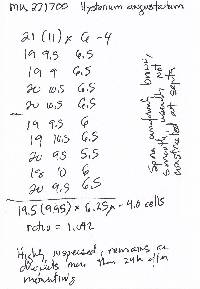 MU 271700 Hysterium angustatum
21 (11) x 6 -4
19 9.5 6.5
19 9 6.5
20 10.5 6.5
20 10.5 6.5
19 9.5 6
19 10.5 6.5
20 9.5 5.5
18 10 6
20 9.5 6.5
19.5 (9.95) x 6.25µ - 4.0 cells
ratio = 1.042
Highly dispersed, remains in
droplets more than 24h after
mounting
Spores uniformly brown,
smooth, usually not
constricted at septa